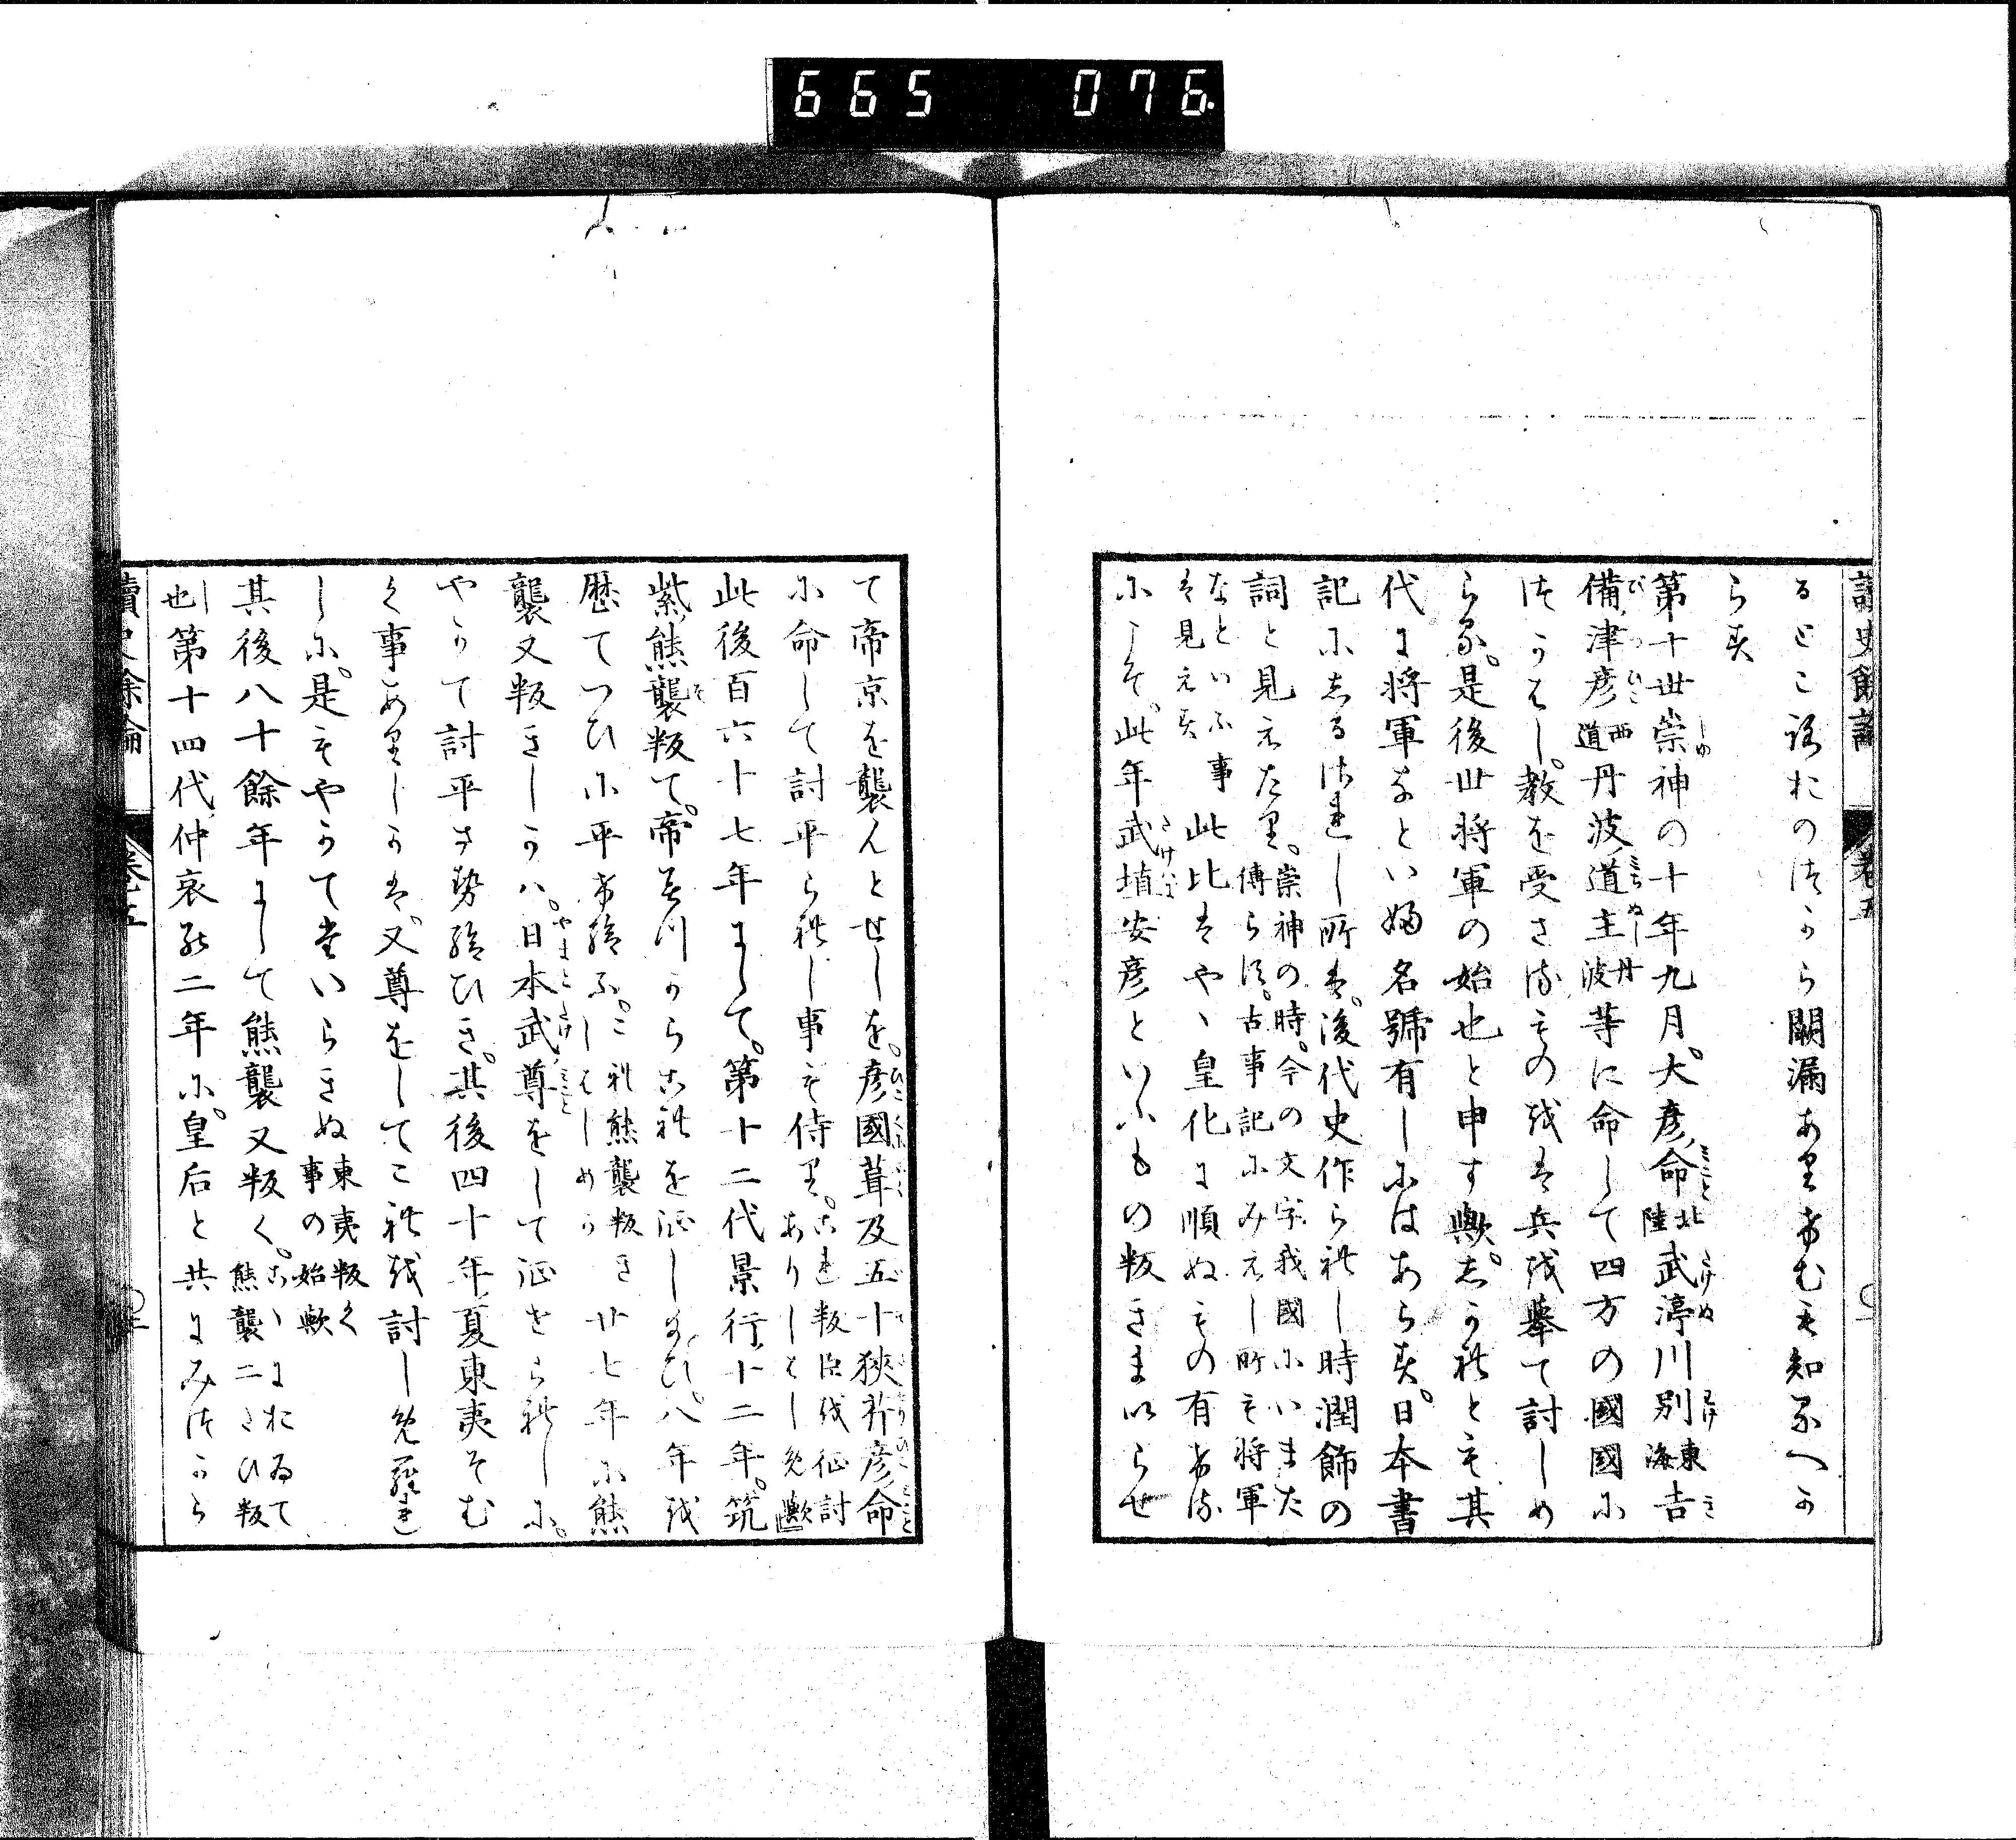 665 076
讀史餘論 卷五
るところおのつから闕漏ありけむも知るへか
らす
第十世崇神の十年九月。大彦命北陸武渟川別東海吉
備津彦西道丹波道主丹波等に命して四方の國國に
つかはし。教を受さるものをは兵を舉て討しめ
らる。是後世將軍の始也と申す歟。しかれとも其
代に将軍なといふ名號有しにはあらす。日本書
記にしるされし所は。後代史作られし時潤飾の
詞と見えたり。崇神の時。今の文字我國にいまた
傳らす。古事記にみえし所も将軍
なといふ事
は見えす
此比はやゝ皇化に順ぬもの有ける
にこそ。此年武埴安彦といふもの叛きまいらせ
て帝京を襲んとせしを。彦國葺及五十狹芹彦命
に命して討平られし事も侍り。これ叛臣を征討
ありしはしめ歟
此後百六十七年にして。第十二代景行十二年。筑
紫熊襲叛て。帝みつからこれを征し給ひ。八年を
歴てつひに平け給ふ。これ熊襲叛き
しはしめか
廿七年に熊
襲又叛きしかハ。日本武尊をして征せられしに。
やかて討平け給ひき。其後四十年夏東夷そむ
く事ありしかは。又尊をしてこれを討しめられ
しに。是もやかて まいらきぬ東夷叛く
事の始歟
其後八十餘年にして熊襲又叛く。こゝにおゐて
熊襲二たひ叛
也第十四代仲哀の二年に。皇后と共にみつから
讀史餘論 卷五